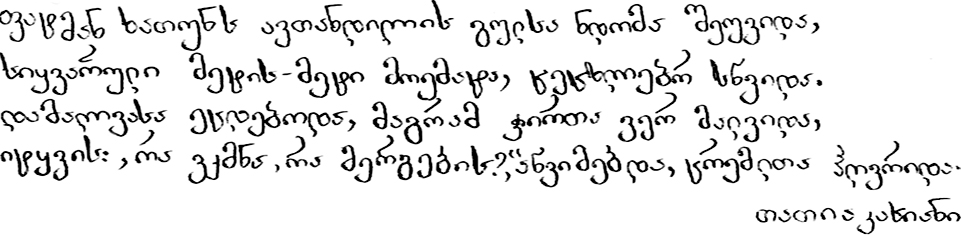 ფატმან ხათუნს ავთანდილის გულსა ნდომა შეუვიდა,
სიყვარული მეტის-მეტი მოემატა, ცეცხლებრ სწვიდა.
დამალვასა ეცდებოდა, მაგრამ ჭირთა ვერ მალვიდა,
იტყვის: „რა ვქმნა, რა მერგების?“, აწვიმებდა, ცრემლთა ჰღვრიდა.
თათია კახიანი